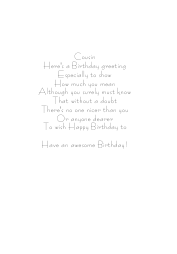 Cousin
Here's a Birthday greeting
Especially to show
How much you mean
Although you surely must know
That without a doubt
There's no one nicer than you
Or anyone dearer
To wish Happy Birthday to
Have an awesome Birthday!